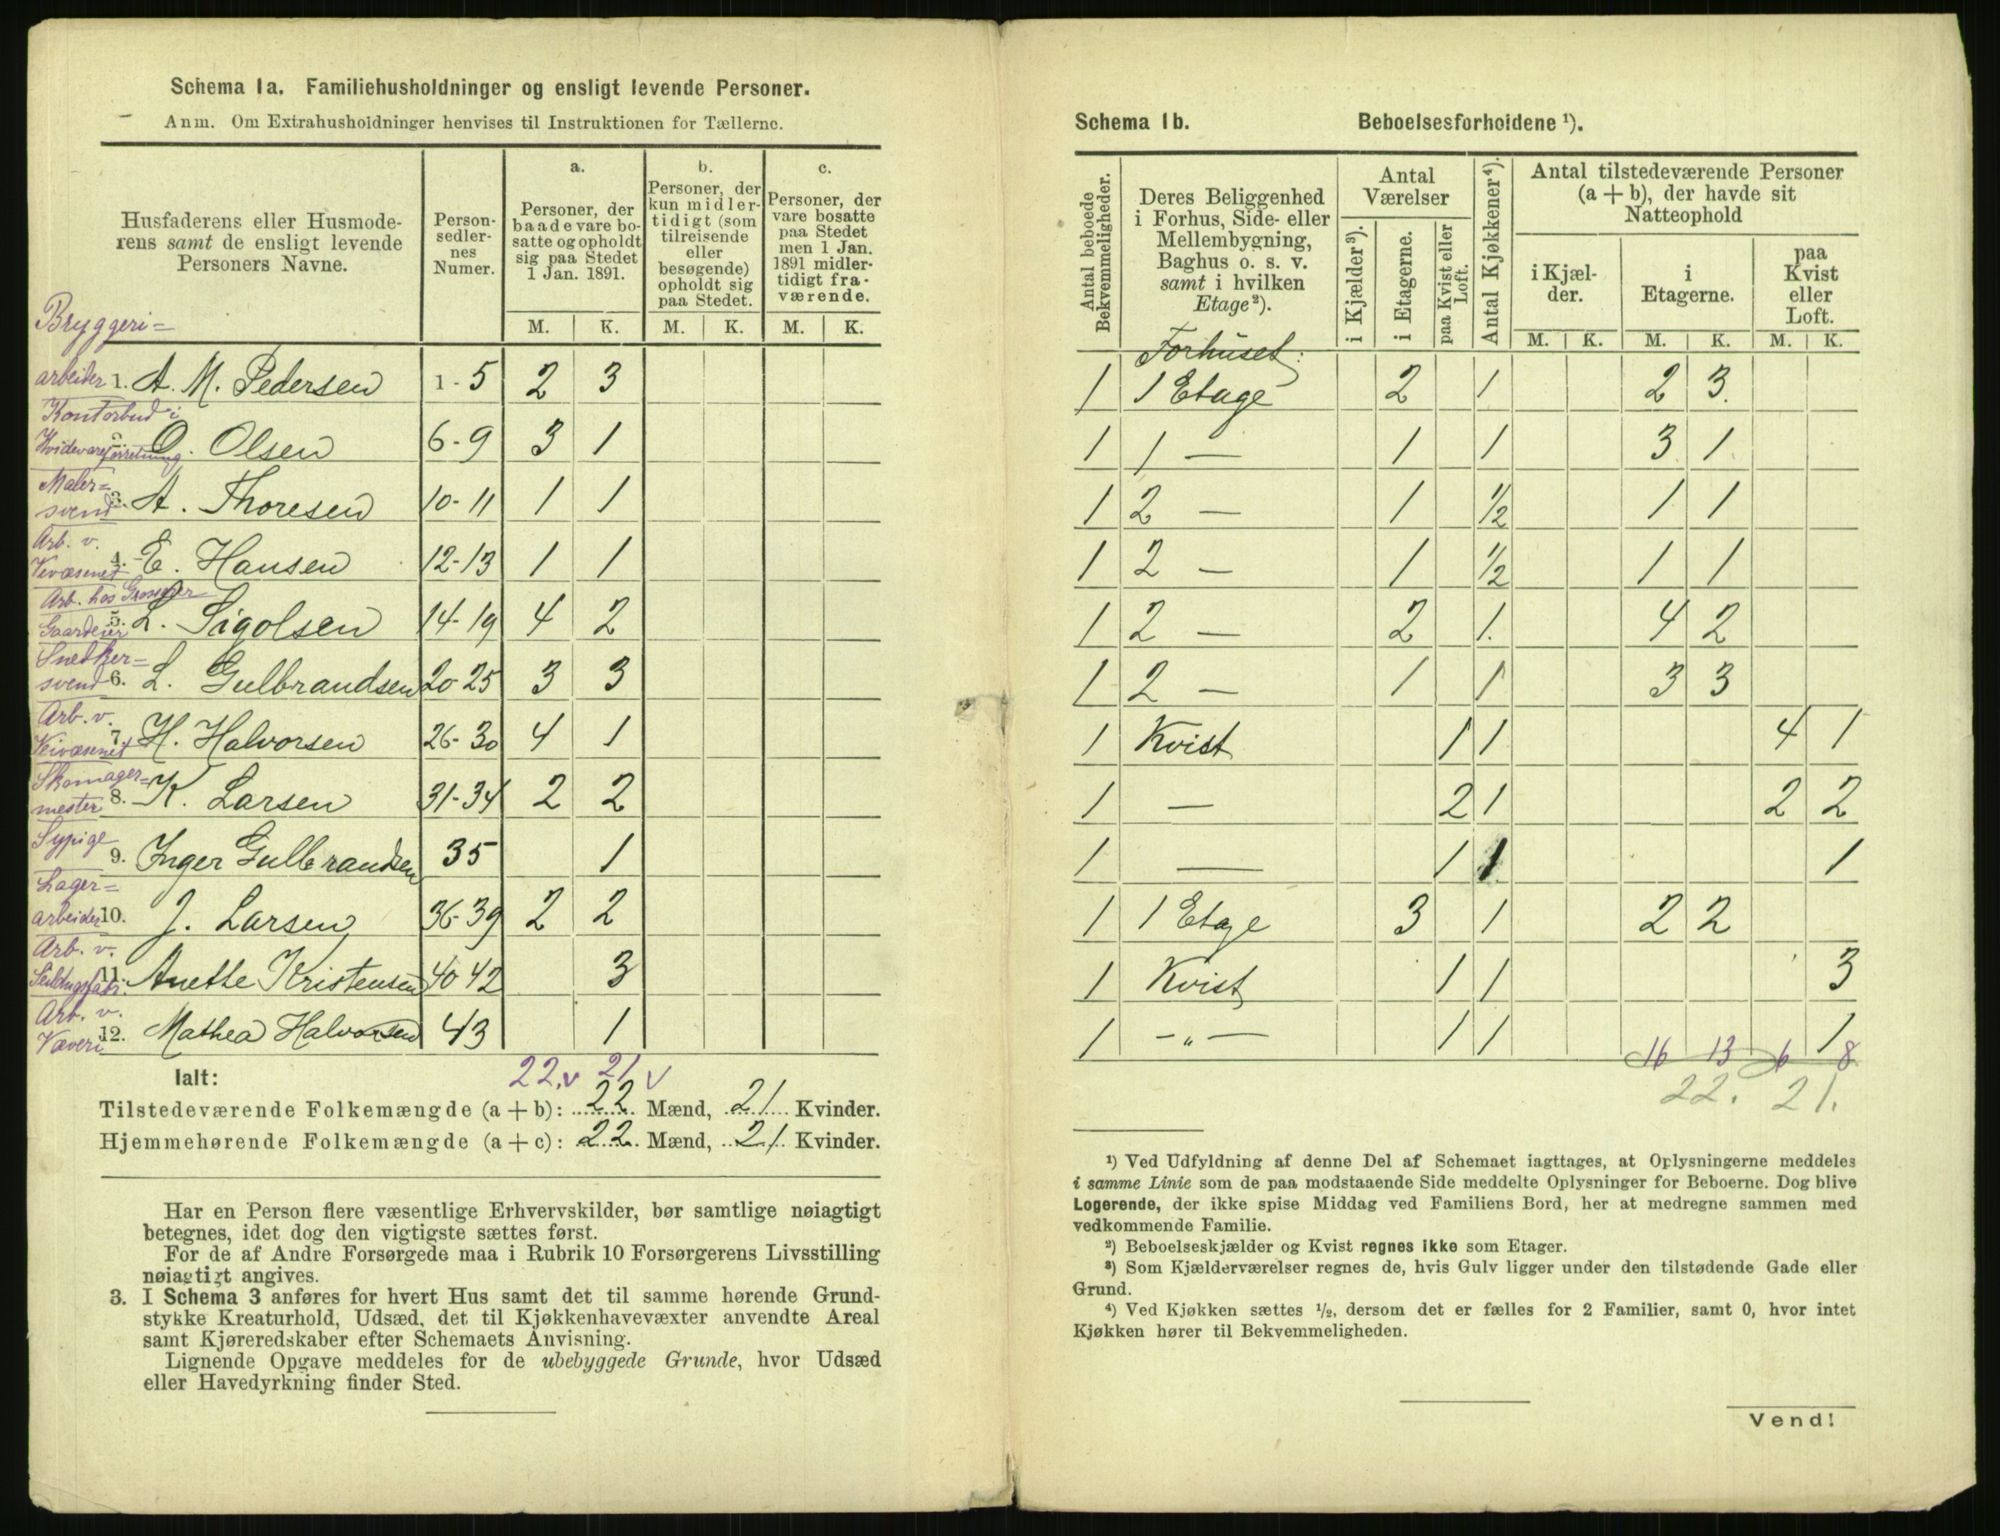 Schema 1a. Familiehusholdninger og ensligt levende Personer.
Anm. Om Extrahusholdninger henvises til Instruktionen for Tællerne.
Husfaderens eller Husmoderens samt de ensligt levende Personers Navne.
Personsedlernes Numer.
a. Personer, der baade vare bosatte og opholdt sig paa Stedet 1 Jan. 1891.
b. Personer, der kun midlertidigt (som tilreisende eller besøgende) opholdt sig paa Stedet.
c. Personer, der vare bosatte paa Stedet men 1 Jan. 1891 midlertidigt fraværende.
M. K. M. K. M. K.
Bryggeri=
arbeider 1. A. M. Pedersen 1-5 2 3
Kontorbud i
Hvidevareforretning 2. O. Olsen 6-9 3 1
Maler=
svend 3. A. Thoresen 10-11 1 1
Arb. v.
Veivæsenet 4. E. Hansen 12-13 1 1
Arb. hos Grosserer
Gaardeier 5. L. Sigolsen 14-19 4 2
Snedker=
svend 6. L. Gulbrandsen 20-25 3 3
Arb. v.
Veivæsenet 7. H. Halvorsen 26-30 4 1
Skomager=
mester 8. K. Larsen 31-34 2 2
Sypige
9. Inger Gulbrandsen 35 1
Lager=
arbeider 10. J. Larsen 36-39 2 2
Arb. v.
11. Anette Kristensen 40 42 3
Arb. v.
Væveri 12. Mathea Halvorsen 43 1
22.v 21 v
Ialt:
Tilstedeværende Folkemængde (a + b): 22 Mænd, 21 Kvinder.
Hjemmehørende Folkemængde (a + c): 22 Mænd, 21 Kvinder.
Har en Person flere væsentlige Erhvervskilder, bør samtlige nøiagtigt
betegnes, idet dog den vigtigste sættes først.
For de af Andre Forsørgede maa i Rubrik 10 Forsørgerens Livsstilling
nøiagtigt angives.
3. I Schema 3 anføres for hvert Hus samt det til samme hørende Grund-
stykke Kreaturhold, Udsæd, det til Kjøkkenhavevæxter anvendte Areal
samt Kjøreredskaber efter Schemaets Anvisning.
Lignende Opgave meddeles for de ubebyggede Grunde, hvor Udsæd
eller Havedyrkning finder Sted.
Schema 1b. Beboelsesforholdene ¹).
Antal beboede Bekvemmeligheder.
Deres Beliggenhed i Forhus, Side- eller Mellembygning, Baghus o. s. v. samt i hvilken Etage²).
Antal Værelser
i Kjælder³).
i Etagerne.
paa Kvist eller Loft.
Antal Kjøkkener⁴).
Antal tilstedeværende Personer (a + b), der havde sit Natteophold
i Kjælder.
i Etagerne.
paa Kvist eller Loft.
M. K. M. K. M. K.
Forhuset:
1 1 Etage 2 1 2 3.
1 1 — 1 1 3 1
1 2 — 1 1/2 1 1
1 2 — 1 1/2 1 1
1 2 — 2 1. 4 2
1 2 — 1 1 3 3
1 Kvist 1 1 4 1
1 — 2 1 2 2
1 — 1 1 1
1 1 Etage 3 1 2 2
1 Kvist 1 1 3
1 -„- 1 1 1
16 13 6 8
22. 21.
¹) Ved Udfyldning af denne Del af Schemaet iagttages, at Oplysningerne meddeles
i samme Linie som de paa modstaaende Side meddelte Oplysninger for Beboerne. Dog blive
Logerende, der ikke spise Middag ved Familiens Bord, her at medregne sammen med
vedkommende Familie.
²) Beboelseskjælder og Kvist regnes ikke som Etager.
³) Som Kjælderværelser regnes de, hvis Gulv ligger under den tilstødende Gade eller
Grund.
⁴) Ved Kjøkken sættes ¹/₂, dersom det er fælles for 2 Familier, samt 0, hvor intet
Kjøkken hører til Bekvemmeligheden.
Vend!